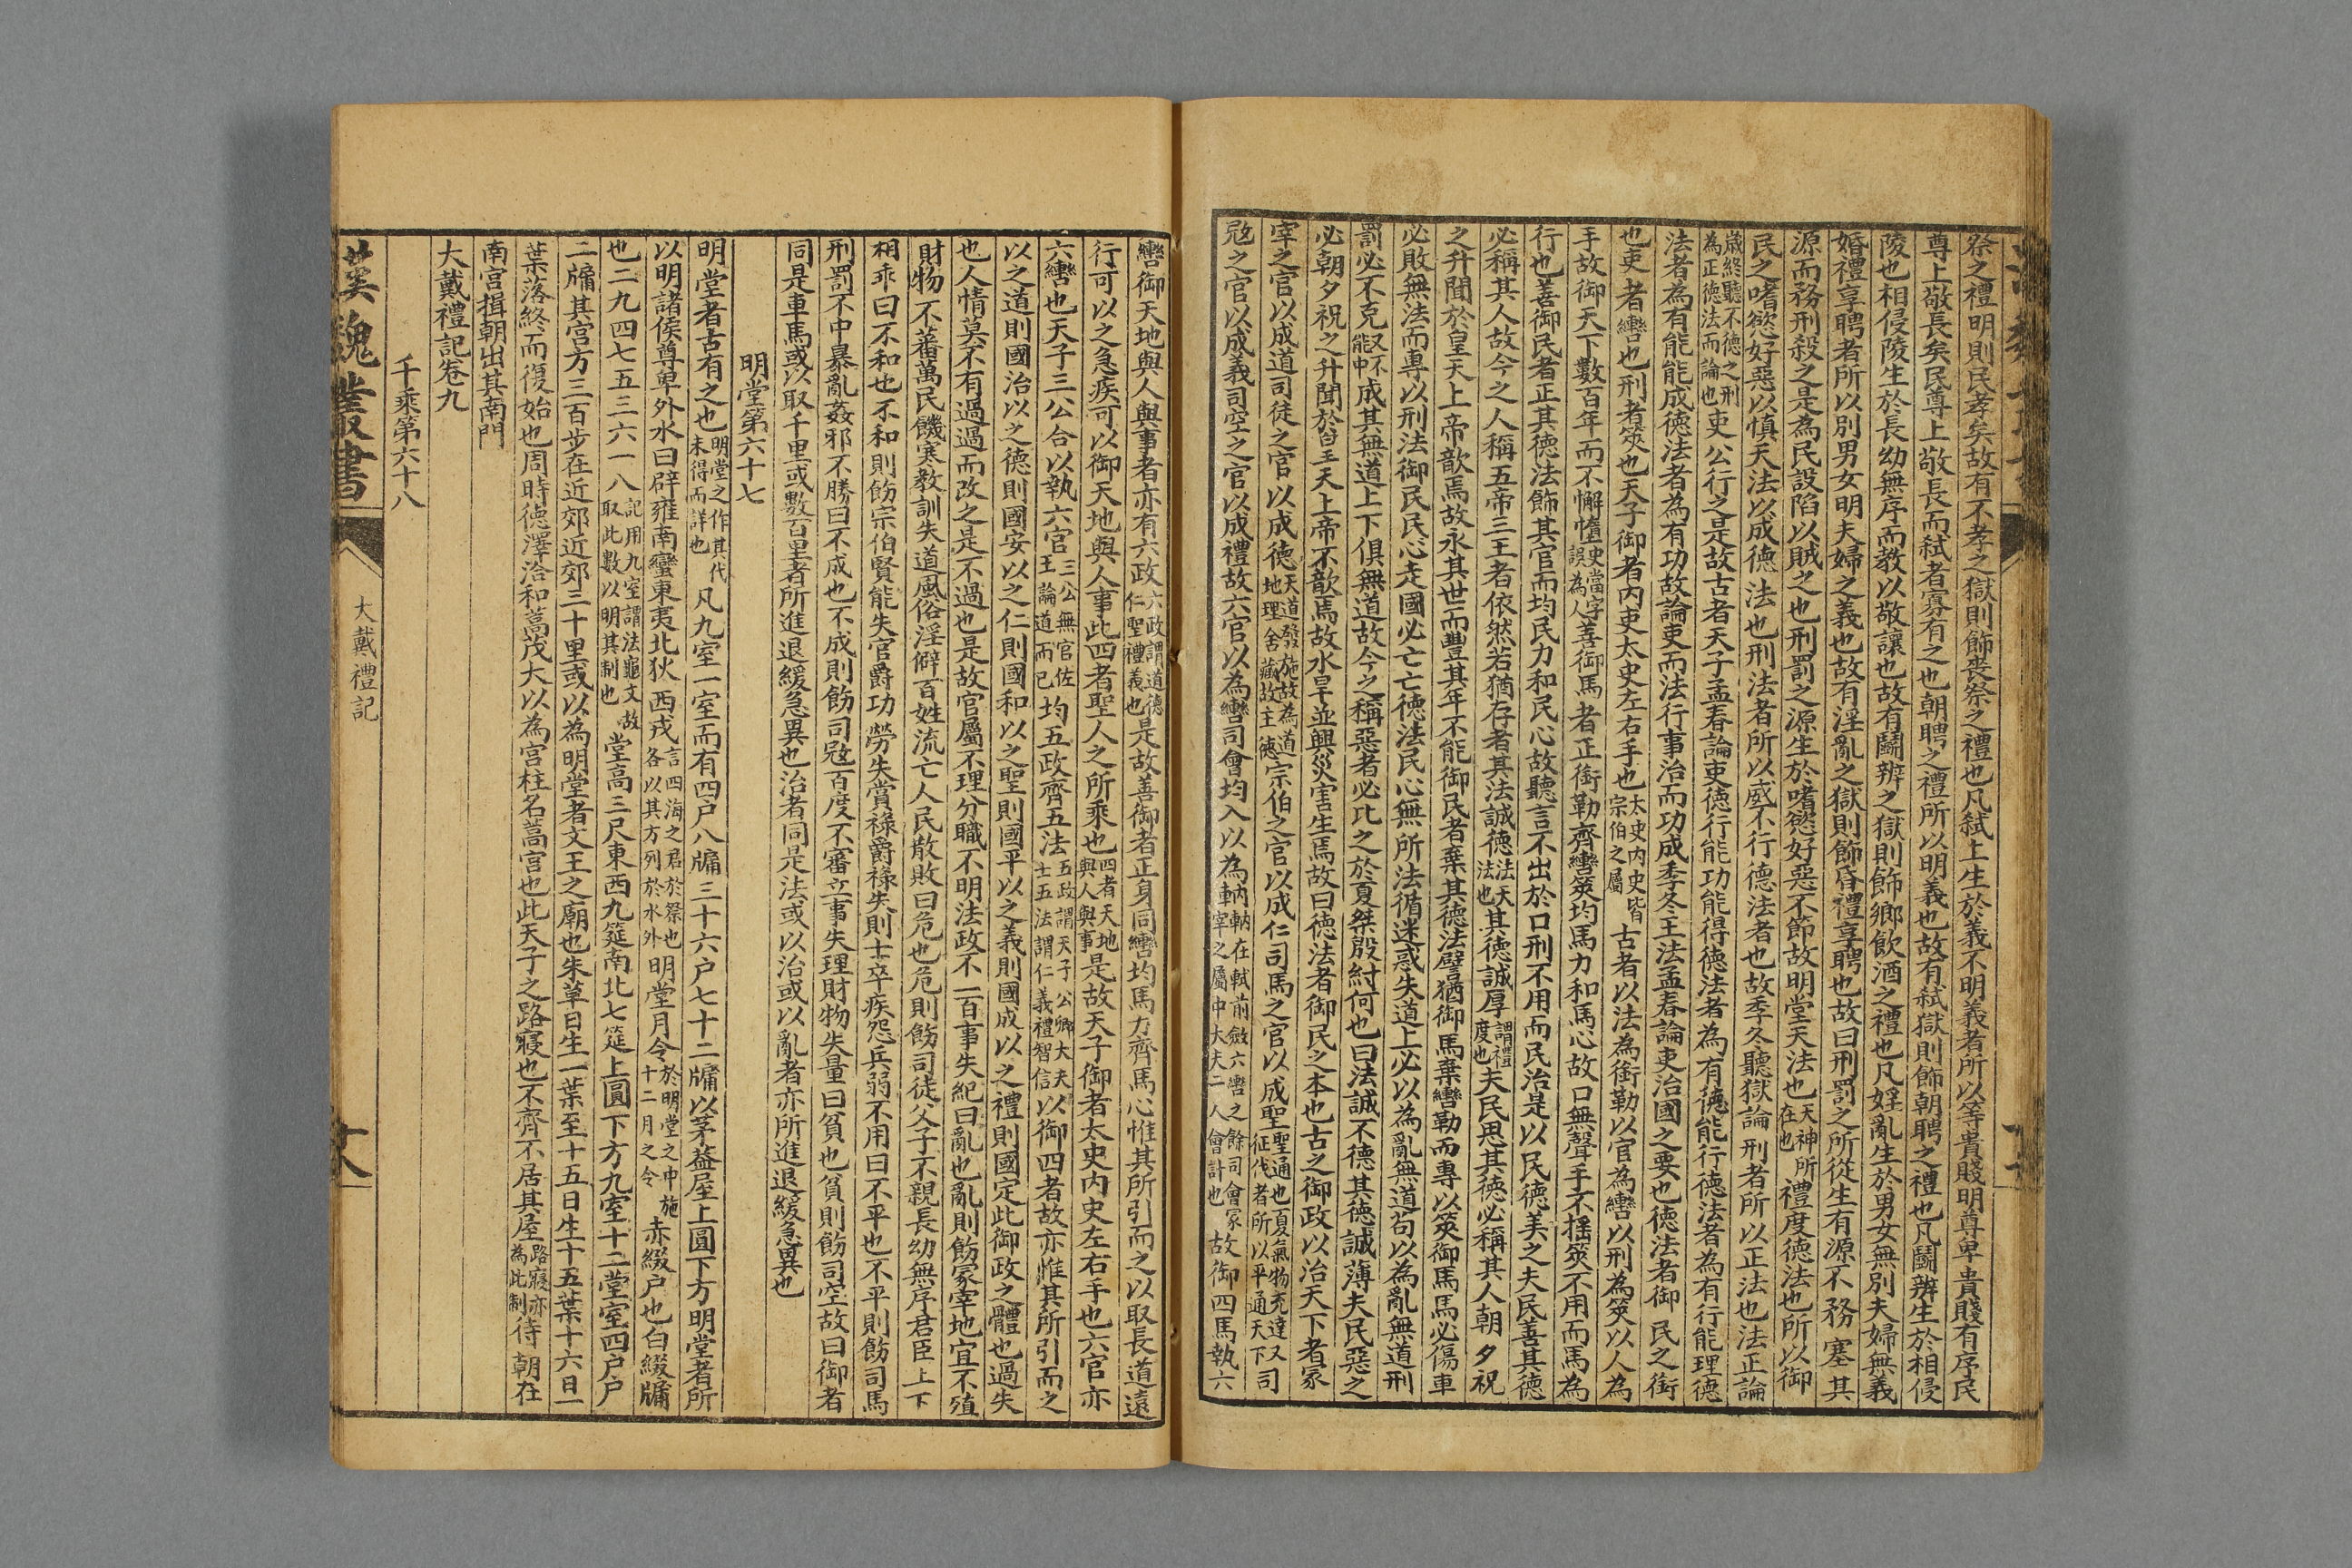 祭之禮明則民孝矣故有不孝之獄則飾喪祭之禮也凡弑上生於義不明義者所以等貴賤明尊卑貴賤有序民
尊上敬長矣民尊上敬長而弑者寡有之也朝聘之禮所以明義也故有弑獄則飾朝聘之禮也凡鬭辨生於相侵
陵也相侵陵生於長幼無序而教以敬讓也故有鬭辨之獄則飾鄉飲酒之禮也凡婬亂生於男女無別夫婦無義
婚禮享聘者所以別男女明夫婦之義也故有淫亂之獄則飾昏禮享聘也故曰刑罰之所從生有源不務塞其
源而務刑殺之是為民設陷以賊之也刑罰之源生於嗜慾好惡不節故明堂天法也天神所在也禮度德法也所以御
民之嗜慾好惡以慎天法以成德法也刑法者所以威不行德法者也故季冬聽獄論刑者所以正法也法正論
歲終聽不德之刑為正德法而論也吏公行之是故古者天子孟春論吏德行能功能得德法者為有德能行德法者為有行能理德
法者為有能能成德法者為有功故論吏而法行事治而功成季冬主法孟春論吏治國之要也德法者御民之銜
也吏者轡也刑者筴也天子御者內史太史左右手也太史內史皆宗伯之屬古者以法為銜勒以官為轡以刑為筴以人為
手故御天下數百年而不懈憜史當字誤為人善御馬者正銜勒齊轡筴均馬力和馬心故口無聲手不搖筴不用而馬為
行也善御民者正其德法飾其官而均民力和民心故聽言不出於口刑不用而民治是以民德美之夫民善其德
必稱其人故今之人稱五帝三王者依然若猶存者其法誠德法天法也其德誠厚謂禮度也夫民思其德必稱其人朝夕祝
之升聞於皇天上帝歆焉故永其世而豐其年不能御民者棄其德法譬猶御馬棄轡勒而專以筴御馬馬必傷車
必敗無法而專以刑法御民民心走國必亡亡德法民心無所法循迷惑失道上必以為亂無道苟以為亂無道刑
罰必不克又不能中成其無道上下俱無道故今之稱惡者必比之於夏桀殷紂何也曰法誠不德其德誠薄夫民惡之
必朝夕祝之升聞於皇天上帝不歆焉故水旱並興災害生焉故曰德法者御民之本也古之御政以治天下者冢
宰之官以成道司徒之官以成德天道發施故為道地理舍藏故主德宗伯之官以成仁司馬之官以成聖聖通也夏氣物充達又司征伐者所以平通天下司
寇之官以成義司空之官以成禮故六官以為轡司會均入以為軜軜在軾前斂六轡之餘司會冢宰之屬中大夫二人會計也故御四馬執六
轡御天地與人與事者亦有六政六政謂道德仁聖禮義也是故善御者正身同轡均馬力齊馬心惟其所引而之以取長道遠
行可以之急疾可以御天地與人事此四者聖人之所乘也四者天地與人與事是故天子御者太史內史左右手也六官亦
六轡也天子三公合以執六官三公無官佐王論道而已均五政齊五法五政謂天子公卿大夫士五法謂仁義禮智信以御四者故亦惟其所引而之
以之道則國治以之德則國安以之仁則國和以之聖則國平以之義則國成以之禮則國定此御政之體也過失
也人情莫不有過過而改之是不過也是故官屬不理分職不明法政不一百事失紀曰亂也亂則飭冢宰地宜不殖
財物不蕃萬民饑寒教訓失道風俗淫僻百姓流亡人民散敗曰危也危則飭司徒父子不親長幼無序君臣上下
相乖曰不和也不和則飭宗伯賢能失官爵功勞失賞祿爵祿失則士卒疾怨兵弱不用曰不平也不平則飭司馬
刑罰不中暴亂姦邪不勝曰不成也不成則飭司寇百度不審立事失理財物失量曰貧也貧則飭司空故曰御者
同是車馬或以取千里或數百里者所進退緩急異也治者同是法或以治或以亂者亦所進退緩急異也
明堂第六十七
明堂者古有之也明堂之作其代未得而詳也凡九室一室而有四户八牖三十六户七十二牖以茅葢屋上圓下方明堂者所
以明諸侯尊卑外水曰辟雍南蠻東夷北狄西戎言四海之君於祭也各以其方列於水外明堂月令於明堂之中施十二月之令赤綴户也白綴牖
也二九四七五三六一八記用九室謂法龜文故取此數以明其制也堂高三尺東西九筵南北七筵上圓下方九室十二堂室四户户
二牖其宮方三百步在近郊近郊三十里或以為明堂者文王之廟也朱草日生一葉至十五日生十五葉十六日一
葉落終而復始也周時德澤洽和蒿茂大以為宮柱名蒿宮也此天子之路寢也不齊不居其屋路寢亦為此制待朝在
南宮揖朝出其南門
大戴禮記卷九
千乘第六十八
漢魏叢書
大戴禮記
十八